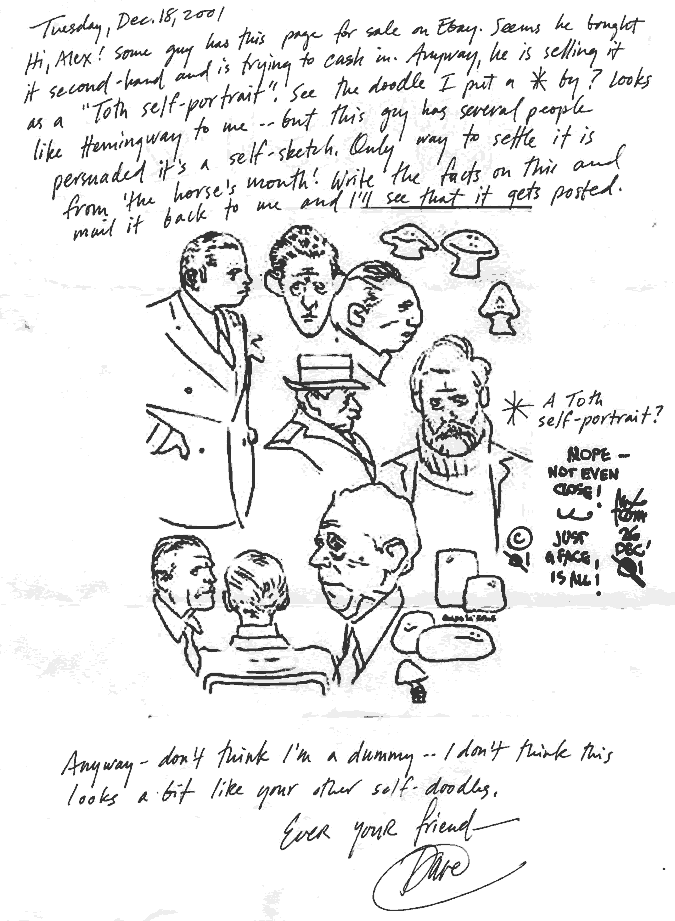 Tuesday, Dec. 18, 2001
Hi, Alex! Some guy has this page for sale on Ebay. Seems he bought
it second-hand and is trying to cash in. Anyway, he is selling it
as a "Toth self-portrait". See the doodle I put a * by? Looks
like Hemingway to me -- but this guy has several people
persuaded it's a self-sketch. Only way to settle it is
from 'the horse's mouth! Write the facts on this and
mail it back to me and I'll see that it gets posted.
* A Toth
self-portrait?
NOPE -
NOT EVEN
CLOSE!
JUST
A FACE!
IS ALL!
©
26
DEC!
01
Anyway - don't think I'm a dummy -- I don't think this
looks a bit like your other self-doodles.
Ever your friend -
Dave